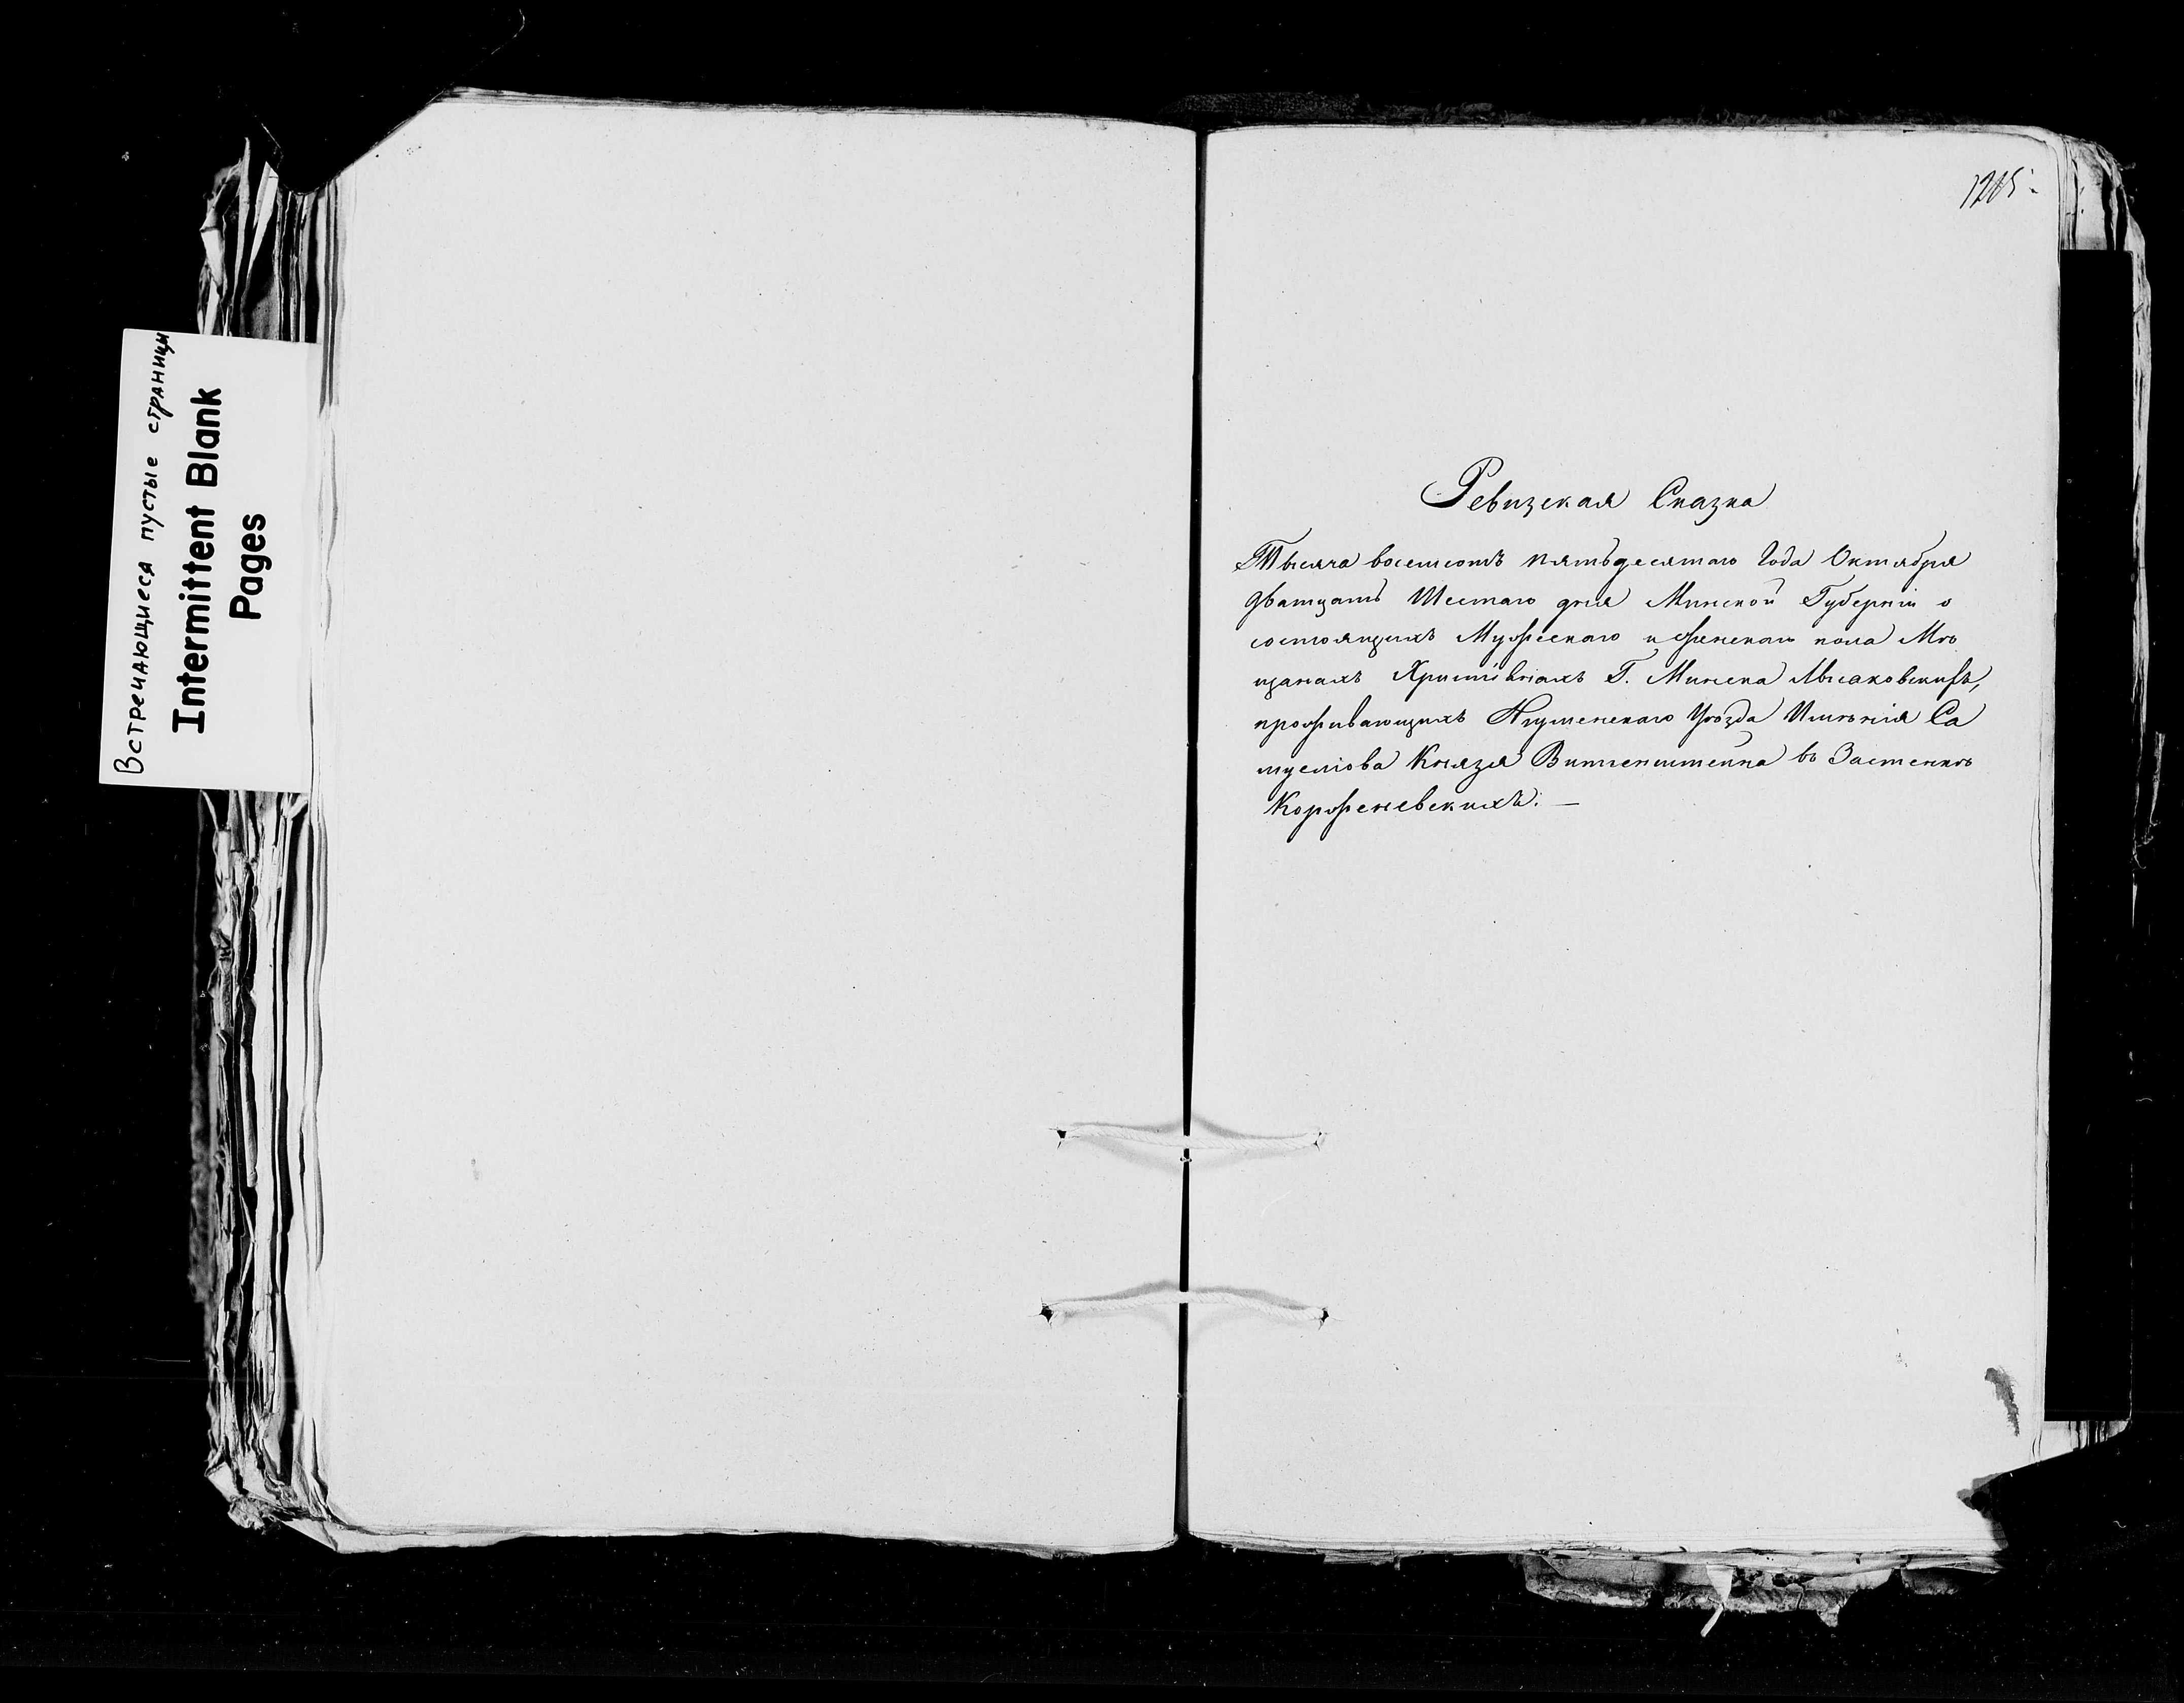 Встречающиеся пустые страницы
Intermittent Blank
Pages
Ревизская Сказка
Тысяча восемсотъ пятьдесятаго Года Октября
дватцать Шестаго дня Минской Губерніи о
состоящихъ Мужескаго и женскаго пола Мѣ
щанахъ Христіянахъ Г. Минска
проживающихъ Игуменскаго Уѣзда Имѣнія Са
муелова Князя Витгенштейна въ Застенкѣ
Корженевскихъ. —